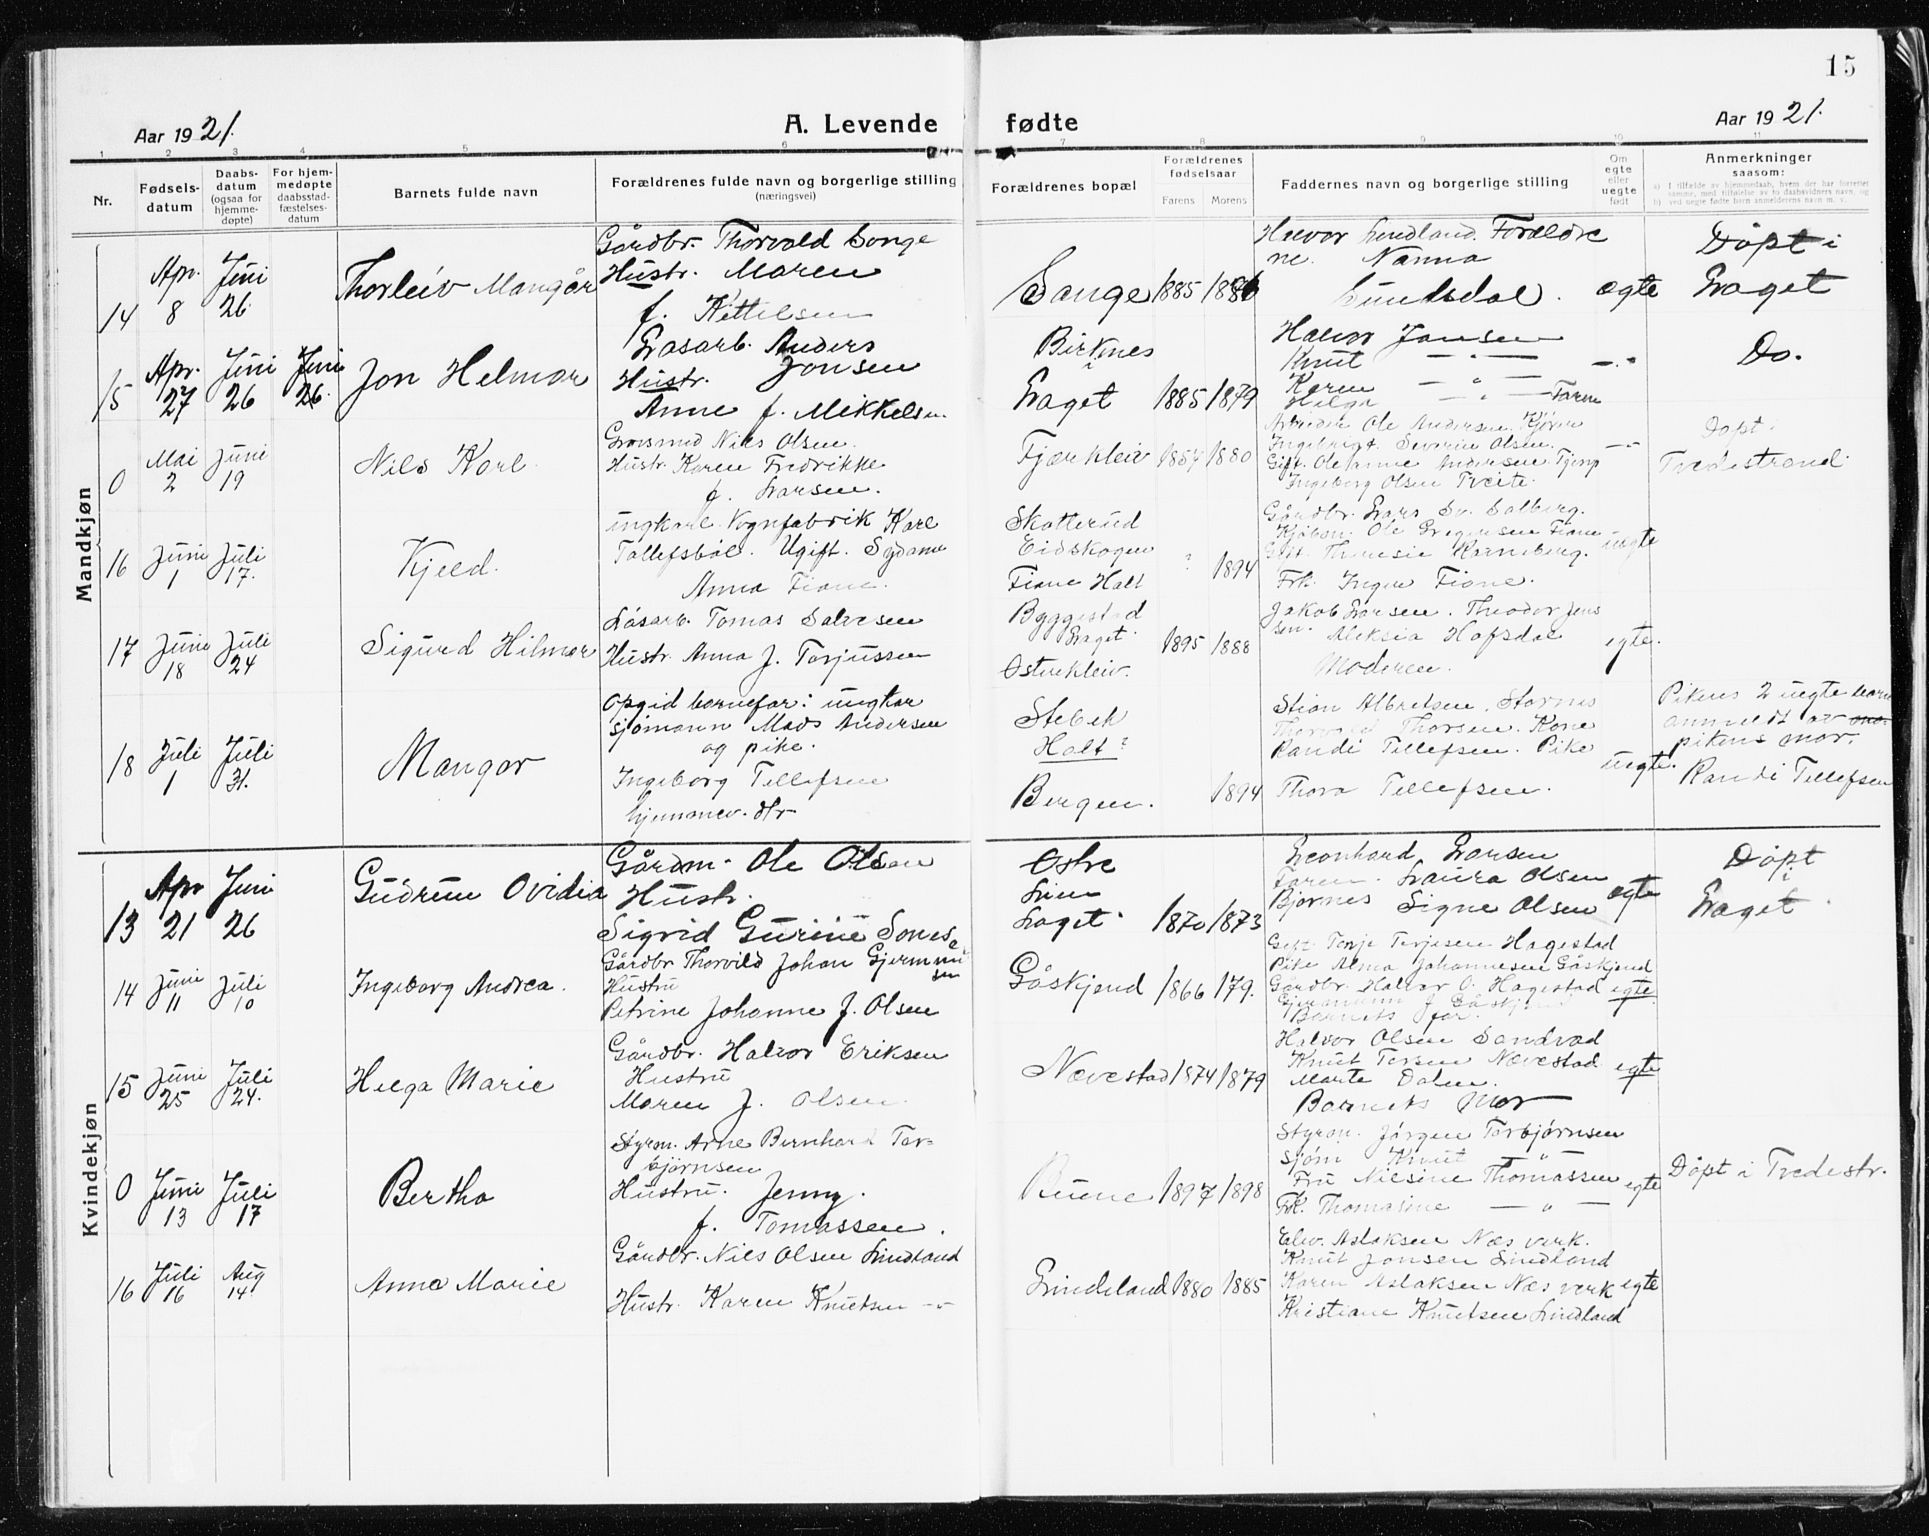 15
Aar 1921.
A. Levende fødte
Aar 1921.
1 2 3 4 5 6 7 8 9 10 11
Nr.
Fødsels-datum
Daabs-datum (ogsaa for hjemme-døpte)
For hjem-medøpte daabsstad-fæstelses-datum
Barnets fulde navn
Forældrenes fulde navn og borgerlige stilling
(næringsvei)
Forældrenes bopæl
Forældrenes fødselsaar
Farens. Morens
Faddernes navn og borgerlige stilling
Om egte eller uegte født
Anmerkninger
saasom:
Mandkjøn
14 Apr. 8 Juni 26 Thorleiv Mangår
Gårdbr. Thorvald Songe
Hustr. Maren
f. Kittelsen
Songe 1885 1886
Halvor Lindland. Foreldre
ne. Nanna
Sundsdal. egte
Døpt i
Laget
15 Apr. 27 Juni 26 Juni 26. Jon Helmor
Løsarb. Anders
Jonsen
Hustr.
Anne f. Mikkelsen
Birknes
Laget 1885 1879
Halvor Jansen
Knut — " —
Karen — " —
Helga — " — Faren
Do.
0 Mai 2 Juni 19 Nils Karl
Grovsmed Nils Olsen.
Hustr. Karen Fredrikke
f. Larsen.
Fjærkleiv 1857 1880
Arbeider Ole Andersen
Ingebrigt. Severin Olsen.
Gift. Oleanne Andersen
Ingeborg Olsen Tveite.
Døpt.
Tvedestrand.
16 Juni 1 Juli 17. Kjeld.
ungkarl. Vognfabrik Karl
Tallefsbøl. Ugift. Sydame
Anna Fiane.
Skotterud
Eidskogen
Fiane Halt ? 1894
Gårdbr. Lars Sv. Solberg.
Kjøbm. Ole Gregersen Fiane
Gift. Theresie Karnsberg.
Frk. Inger Fiane.
uegte
17 Juni 18 Juli 24 Sigurd Hilmor
Løsarb. Tomas Salvesen
Hustr. Anna f. Torjussen
Byggestad
Laget.
Østerkleiv. 1895 1888
Jakob Larsen. Theodor Jens
sen. Aleksia Hofsdal
Moderen.
egte.
18 Juli 1 Juli 31. Mangor
Opgid barnefar: ungkar
sjømann Mads Andersen
og pike.
Ingeborg Tellefsen
hjemmev. dtr
Stebek
Holt?
Bergen. 1894
Stian Albretsen. Stornes
Thorvald Thorsen. Kone
Randi Tellefsen. Pike
Thora Tellefsen.
uegte.
Pikens 2 uegte barn
anmeldt av
pikens mor.
Randi Tellefsen
Kvindekjøn
13 Apr 21 Juni 26 Gudrun Ovidia
Gårdm. Ole Olsen
Hustr.
Sigrid Gurine
Østre
Lien
Laget. 1870 1873
Leonhard Larsen
Faren. Laura Olsen
Bjornes Signe Olsen
egte
Døpt
i
Laget.
14 Juni 11 Juli 10 Ingeborg Andrea.
Gårdbr. Thorvild Johan
Hustru
Petrine Johanne f. Olsen
Gåskjend 1866 179.
Gift Tonje Terjesen Hagestad
Pike Alma Johannesen Gåskjend
Gårdbr. Halvor O. Hagestad egte
Barnets far.
15 Juni 25 Juli 24. Helga Marie
Gårdbr. Halvor Eriksen
Hustru
Maren f. Olsen.
Nævestad 1874 1879
Halvor Olsen Sandvad
Knut Torsen Nævestad.
Marte Dalen.
Barnets Mor
egte
0 Juni 13 Juli 17 Bertha
Styrm. Arne Bernhard Tor-
bjørnsen
Hustru. Jenny.
f. Tomassen.
Buene 1897 1898
Styrm. Jørgen Torbjørnsen
Sjøm Knut — " —
Fru Nilsine Thomassen egte
Frk. Thomasine — " —
Døpt i Tvedestr.
16 Juli 16 Aug 14 Anna Marie
Gårdbr. Nils Olsen Lindland
Hustr. Karen Knutsen - " -
Lindeland 1880 1885
Elev. Aslaksen Næs verk.
Knut Jonsen Lindland
Karen Aslaksen Næs verk egte
Kristiane Knutsen Lindland